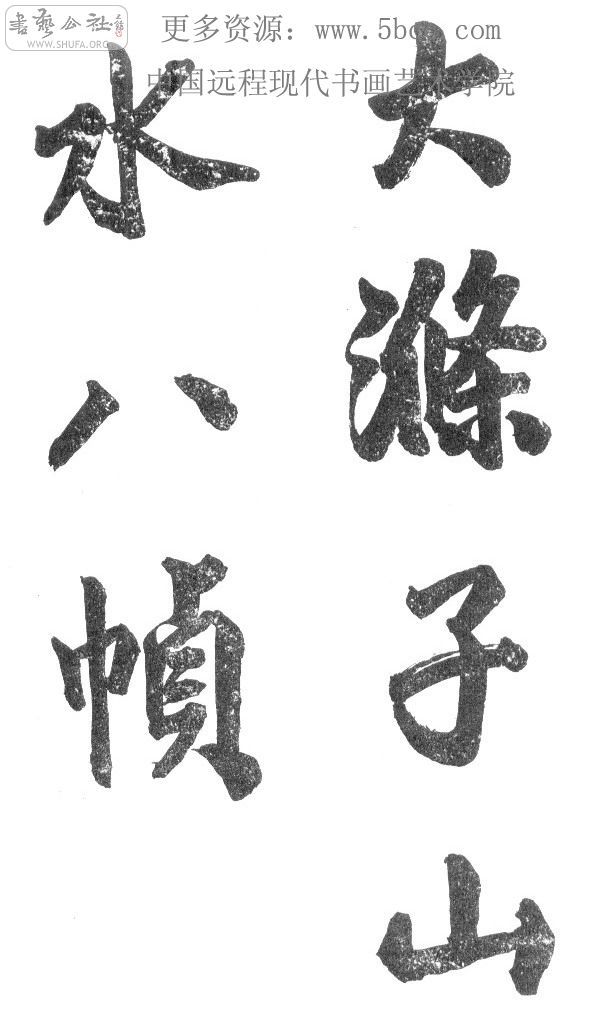 書藝公社
WWW.SHUFA.ORG
更多资源：www.5bc
com
中国远程现代书画艺术学院
大滌子山
水八幀